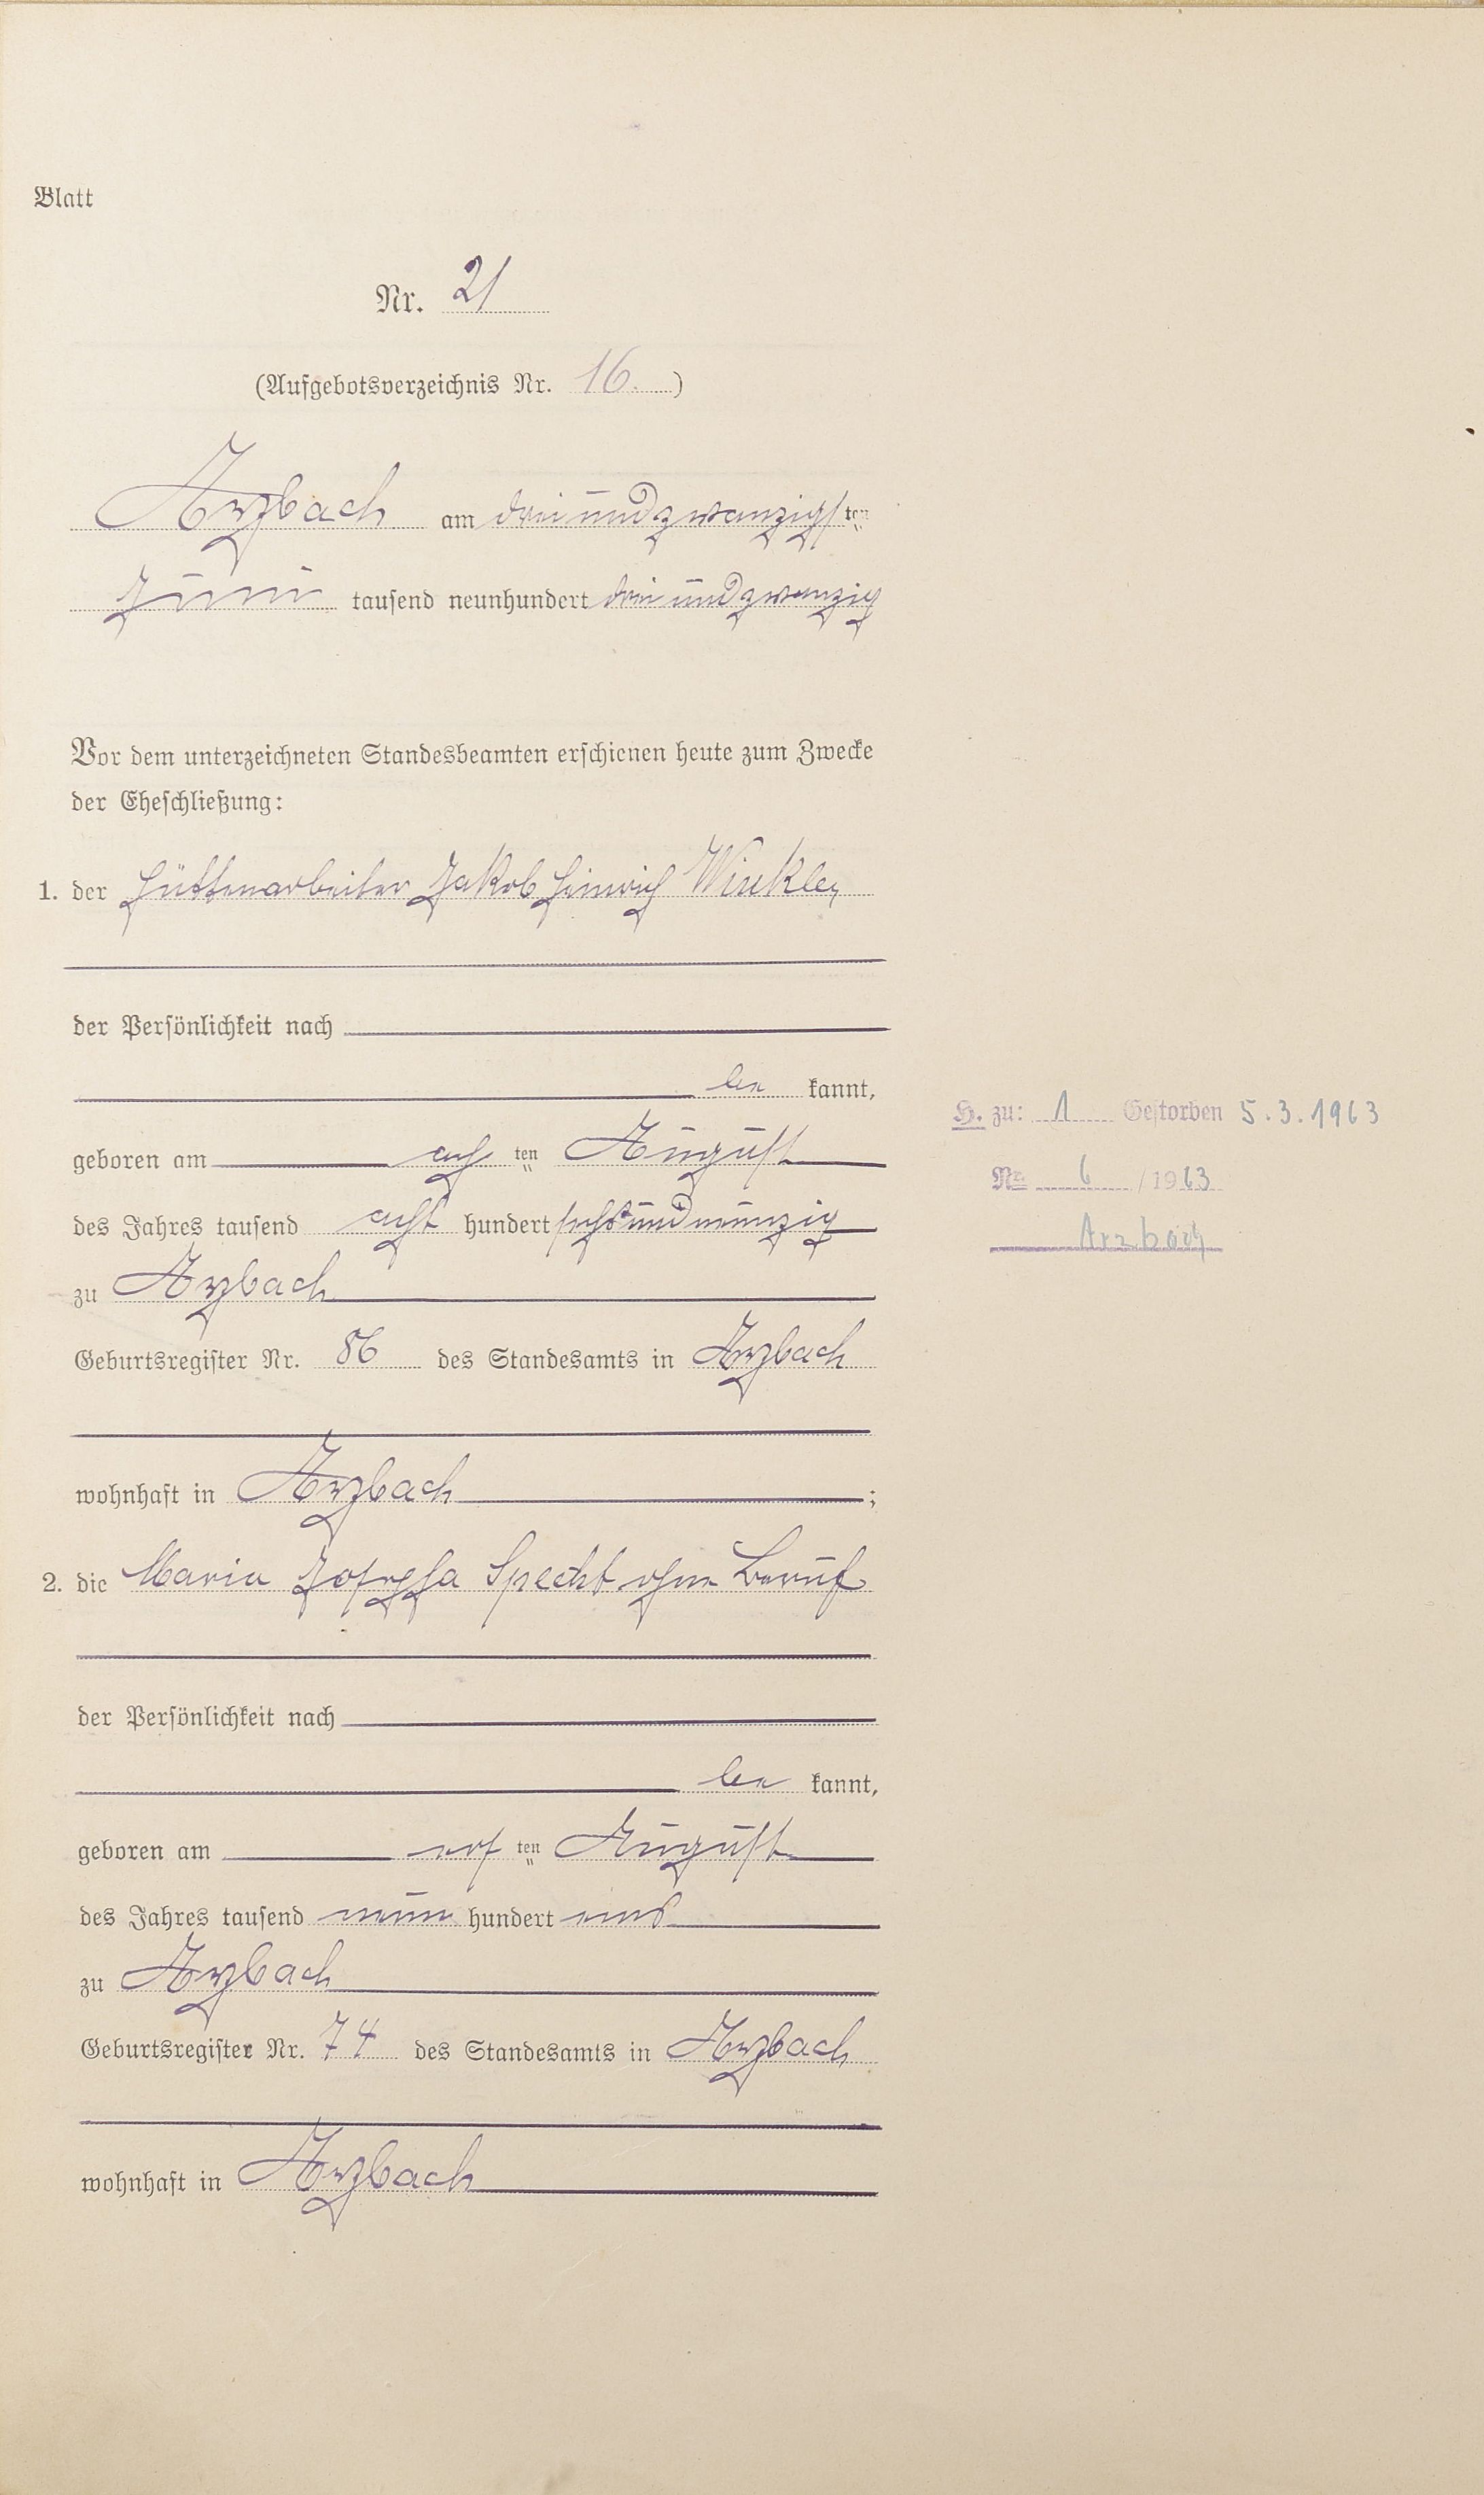 Blatt
Nr. 21
(Aufgebotsverzeichnis Nr. 16.)
Arzbach am dreiundzwanzigsten
Juni tausend neunhundert dreiundzwanzig
Vor dem unterzeichneten Standesbeamten erschienen heute zum Zwecke
der Eheschließung:
1. der Hüttenarbeiter Jakob Heinrich Winkler,
der Persönlichkeit nach
be kannt,
geboren am ach ten August
des Jahres tausend acht hundert sechsundneunzig
zu Arzbach
Geburtsregister Nr. 86 des Standesamts in Arzbach
wohnhaft in Arzbach ;
2. die Maria Josepha Specht ohne Beruf
der Persönlichkeit nach
be kannt,
geboren am ers ten August
des Jahres tausend neun hundert eins
zu Arzbach
Geburtsregister Nr. 74 des Standesamts in Arzbach
wohnhaft in Arzbach
H. zu: 1 Gestorben 5.3.1963
Nr. 6 /1963
Arzbach